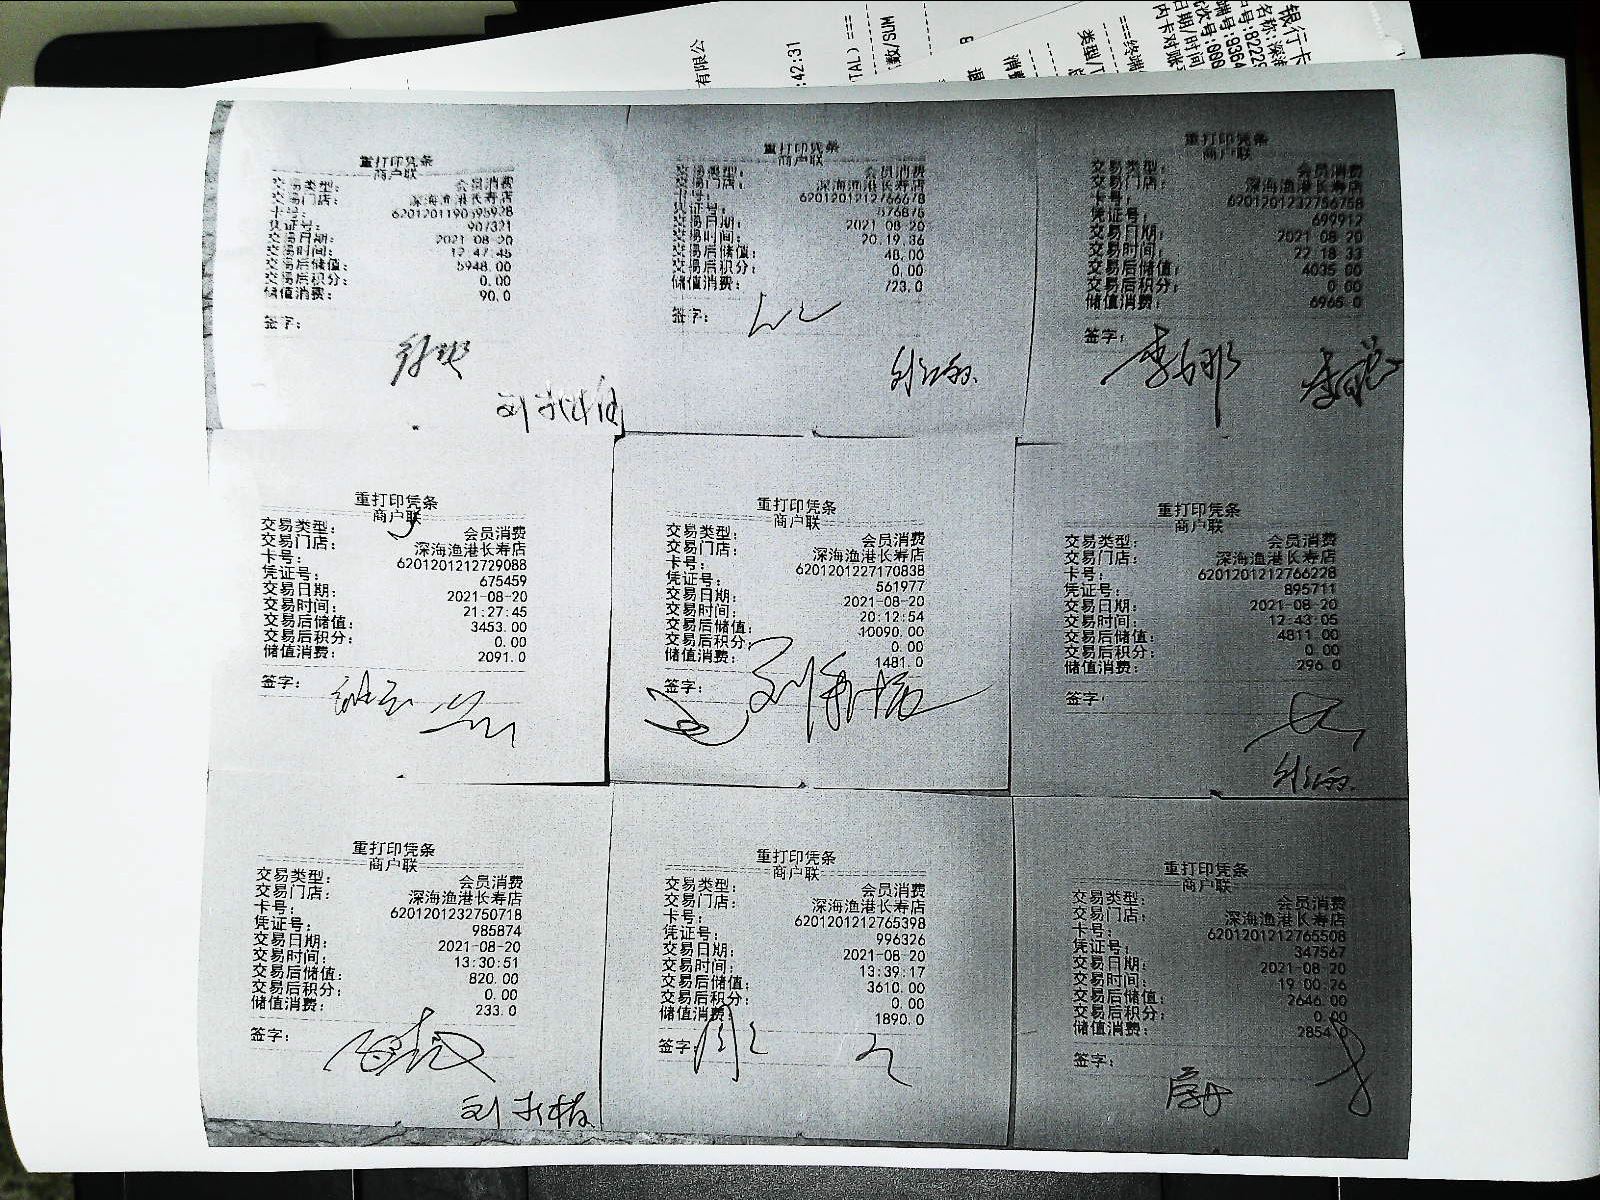 有限公
:42:31
TAL)===
数/SUM
类型/T
银行卡
内卡对账
重打印凭条
商户联
交易类型： 会员消费
交易门店： 深海渔港长寿店
卡号：
凭证号： 907321
交易日期： 2021-08-20
交易时间： 12:47:45
交易后储值： 5948.00
交易后积分： 0.00
储值消费： 90.0
签字：
重打印凭条
商户联
交易类型： 会员消费
交易门店： 深海渔港长寿店
卡号： 6201201212766678
凭证号： 576875
交易日期： 2021-08-20
交易时间： 20:19:36
交易后储值： 48.00
交易后积分： 0.00
储值消费： 723.0
签字：
重打印凭条
商户联
交易类型： 会员消费
交易门店： 深海渔港长寿店
卡号： 6201201232756758
凭证号： 699912
交易日期： 2021-08-20
交易时间： 22:18:33
交易后储值： 4035.00
交易后积分： 0.00
储值消费： 6965.0
签字：
重打印凭条
商户联
交易类型： 会员消费
交易门店： 深海渔港长寿店
卡号： 6201201212729088
凭证号： 675459
交易日期： 2021-08-20
交易时间： 21:27:45
交易后储值： 3453.00
交易后积分： 0.00
储值消费： 2091.0
签字：
重打印凭条
商户联
交易类型： 会员消费
交易门店： 深海渔港长寿店
卡号： 6201201227170838
凭证号： 561977
交易日期： 2021-08-20
交易时间： 20:12:54
交易后储值： 10090.00
交易后积分： 0.00
储值消费： 1481.0
签字：
重打印凭条
商户联
交易类型： 会员消费
交易门店： 深海渔港长寿店
卡号： 6201201212766228
凭证号： 895711
交易日期： 2021-08-20
交易时间： 12:43:05
交易后储值： 4811.00
交易后积分： 0.00
储值消费： 296.0
签字：
重打印凭条
商户联
交易类型： 会员消费
交易门店： 深海渔港长寿店
卡号： 6201201232750718
凭证号： 985874
交易日期： 2021-08-20
交易时间： 13:30:51
交易后储值： 820.00
交易后积分： 0.00
储值消费： 233.0
签字：
重打印凭条
商户联
交易类型： 会员消费
交易门店： 深海渔港长寿店
卡号： 6201201212765398
凭证号： 996326
交易日期： 2021-08-20
交易时间： 13:39:17
交易后储值： 3610.00
交易后积分： 0.00
储值消费： 1890.0
签字：
重打印凭条
商户联
交易类型： 会员消费
交易门店： 深海渔港长寿店
卡号： 6201201212765508
凭证号： 347567
交易日期： 2021-08-20
交易时间： 19:00:26
交易后储值： 2646.00
交易后积分： 0.00
储值消费： 2854.0
签字：